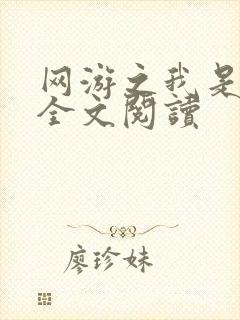 网游之我是
全文閱讀
廖珍妹